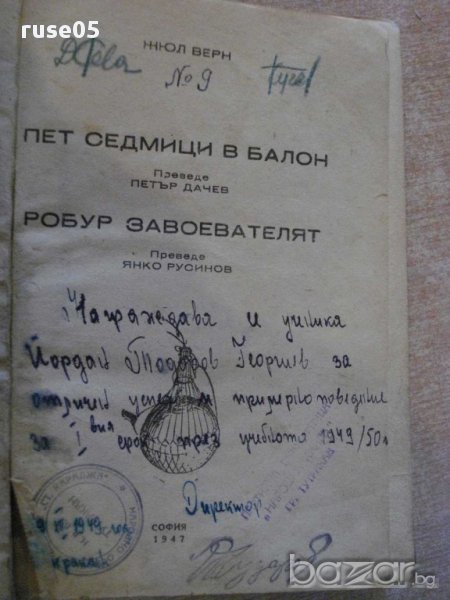 ruse05
ЖЮЛ ВЕРН
№ 9
ПЕТ СЕДМИЦИ В БАЛОН
Преведе
ПЕТЪР ДАЧЕВ
РОБУР ЗАВОЕВАТЕЛЯТ
Преведе
ЯНКО РУСИНОВ
Награждава и ученика
Йордан Тодоров Георгиев за
отличен успех и примерно поведение
за I вия срок през учебното 1949/50 г
Директор
1949 год
СОФИЯ
1947
bazar.bg